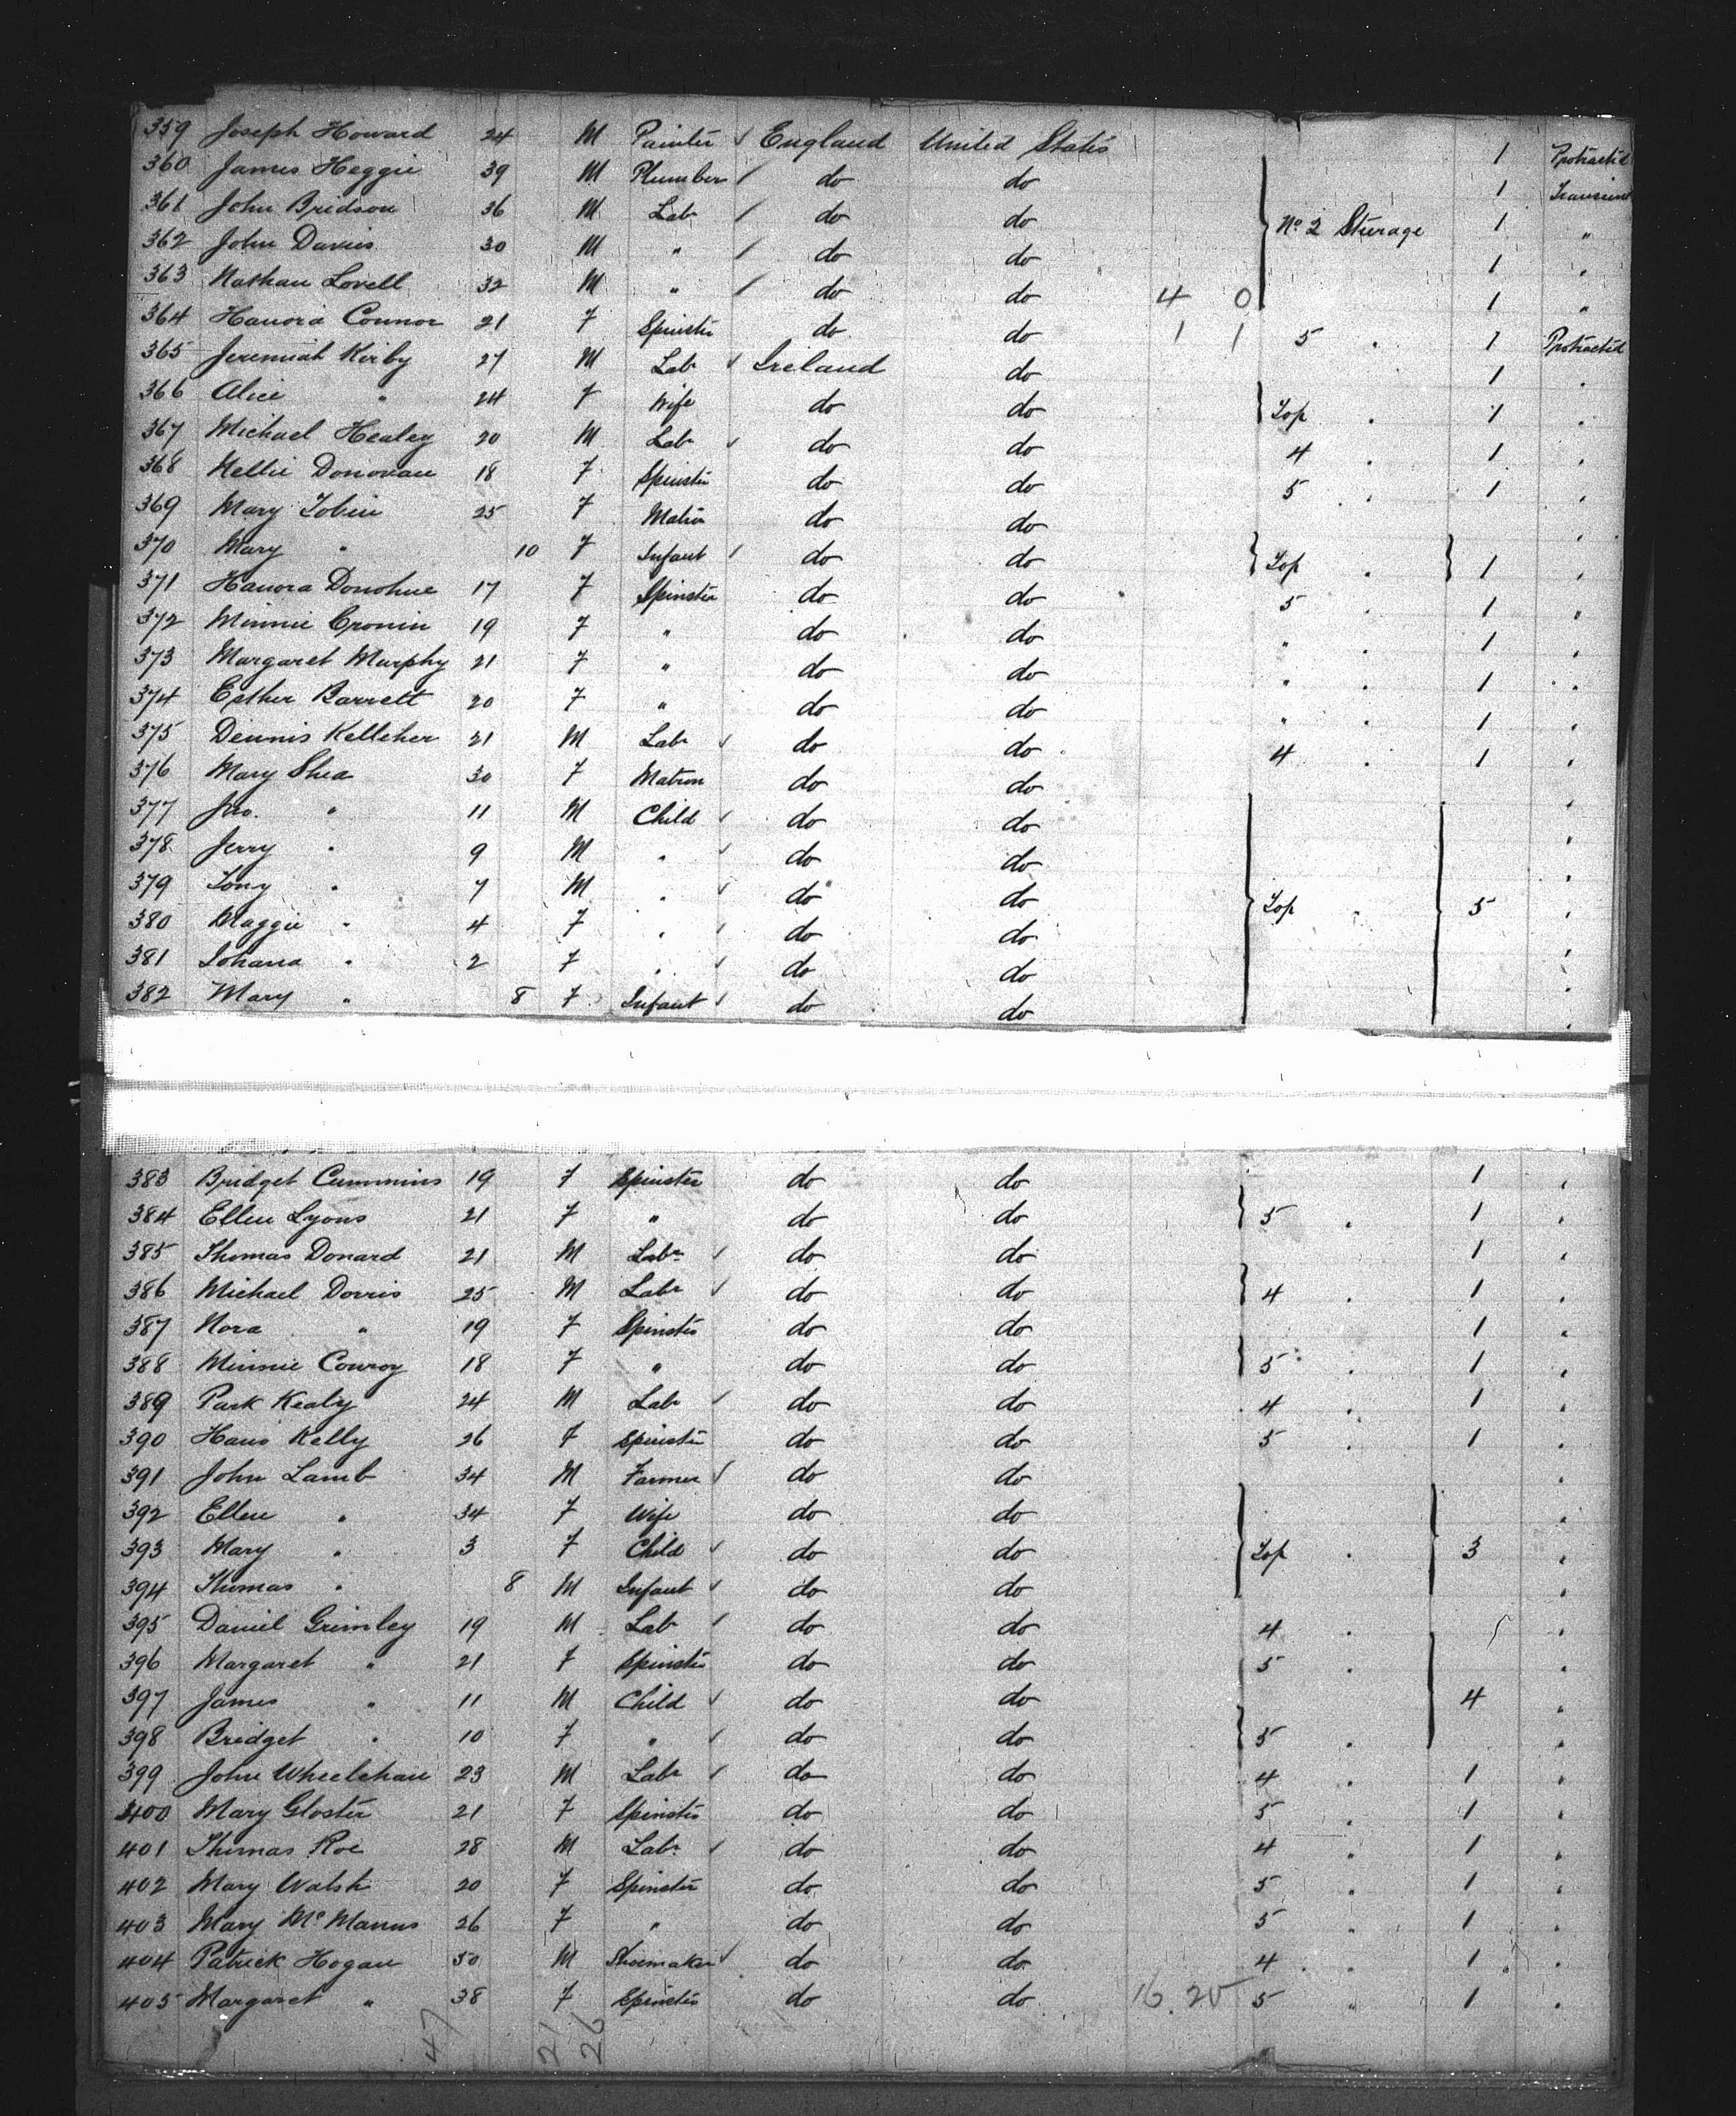 359 Joseph Howard 24 M Painter ✓ England United States 1 Protracted
360 James Heggie 39 M Plumber / do do 1 Transient
361 John Bridson 36 M Labr / do do No 2 Sturage 1 "
362 John Davies 30 M " / do do 1 "
363 Nathan Lovell 32 M " / do do 4 0 1 "
364 Hanora Connor 21 F Spinster do do 1 1 5 " 1 Protracted
365 Jeremiah Kirby 27 M Labr ✓ Ireland do 1 "
366 Alice " 24 F Wife do do Top " 1 "
367 Michael Healey 20 M Labr ✓ do do 4 " 1 "
368 Nellie Donovan 18 F Spinster do do 5 " 1 "
369 Mary Tobin 25 F Matron do do "
370 Mary " 10 F Infant / do do Top " 1 "
371 Hanora Donohue 17 F Spinster do do 5 " 1 "
372 Minnie Cronin 19 F " do do " " 1 "
373 Margaret Murphy 21 F " do do " " 1 "
374 Esther Barrett 20 F " do do " " 1 "
375 Dennis Kelleher 21 M Labr ✓ do do 4 " 1 "
376 Mary Shea 30 F Matron do do "
377 Jno. " 11 M Child ✓ do do "
378 Jerry " 9 M " ✓ do do "
379 Tony " 7 M " ✓ do do Top " 5 "
380 Maggie " 4 F " ✓ do do "
381 Johana " 2 F " ✓ do do "
382 Mary " 8 F Infant ✓ do do "
383 Bridget Cummins 19 F Spinster do do 1 "
384 Ellen Lyons 21 F " do do 5 " 1 "
385 Thomas Donard 21 M Labr ✓ do do 1 "
386 Michael Dorris 25 M Labr ✓ do do 4 " 1 "
387 Nora " 19 F Spinster do do 1 "
388 Minnie Conroy 18 F " do do 5 " 1 "
389 Park Kealy 24 M Labr ✓ do do 4 " 1 "
390 Hano Kelly 26 F Spinster do do 5 " 1 "
391 John Lamb 34 M Farmer ✓ do do "
392 Ellen " 34 F Wife do do "
393 Mary " 3 F Child ✓ do do Top " 3 "
394 Thomas " 8 M Infant ✓ do do "
395 Daniel Grimley 19 M Labr ✓ do do 4 " "
396 Margaret " 21 F Spinster do do 5 " "
397 James " 11 M Child ✓ do do 4 "
398 Bridget " 10 F " ✓ do do 5 " "
399 John Wheelehan 23 M Labr ✓ do do 4 " 1 "
400 Mary Gloster 21 F Spinster do do 5 " 1 "
401 Thomas Roe 28 M Labr ✓ do do 4 " 1 "
402 Mary Walsh 20 F Spinster do do 5 " 1 "
403 Mary McManus 26 F " do do 5 " 1 "
404 Patrick Hogan 50 M Shoemaker ✓ do do 4 " 1 "
405 Margaret " 38 F Spinster do do 16 20 5 " 1 "
47 21 26